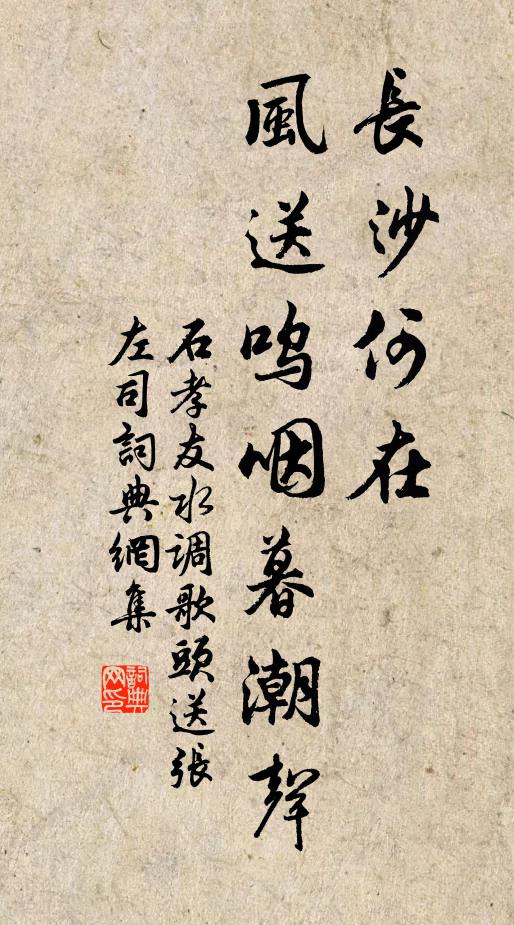 長沙何在
風送嗚咽暮潮聲
石孝友水调歌頭送張
左司詞典網集
詞典
网印